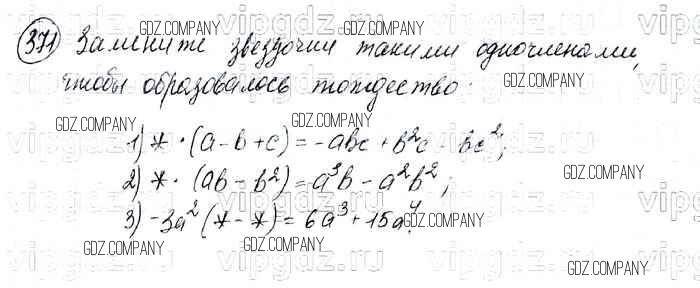 371 Замените звездочки такими одночленами,
чтобы образовалось тождество.
1) * · (a - b + c) = -abc + b²c - bc²;
2) * · (ab - b²) = a³b - a²b²;
3) -3a² (* - *) = 6a³ + 15a⁴.
GDZ.COMPANY
vipgdz.ru